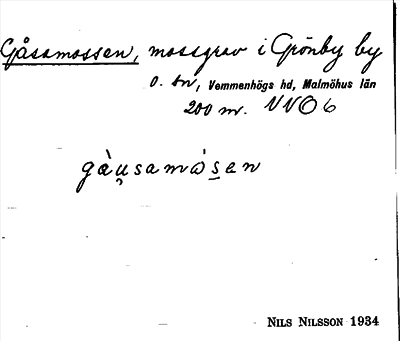 Gåsamossen, mossgrav i Grönby by
o. sn, Vemmenhögs hd, Malmöhus län
200 m. VVO 6
gàu̯samós̲en
NILS NILSSON 1934